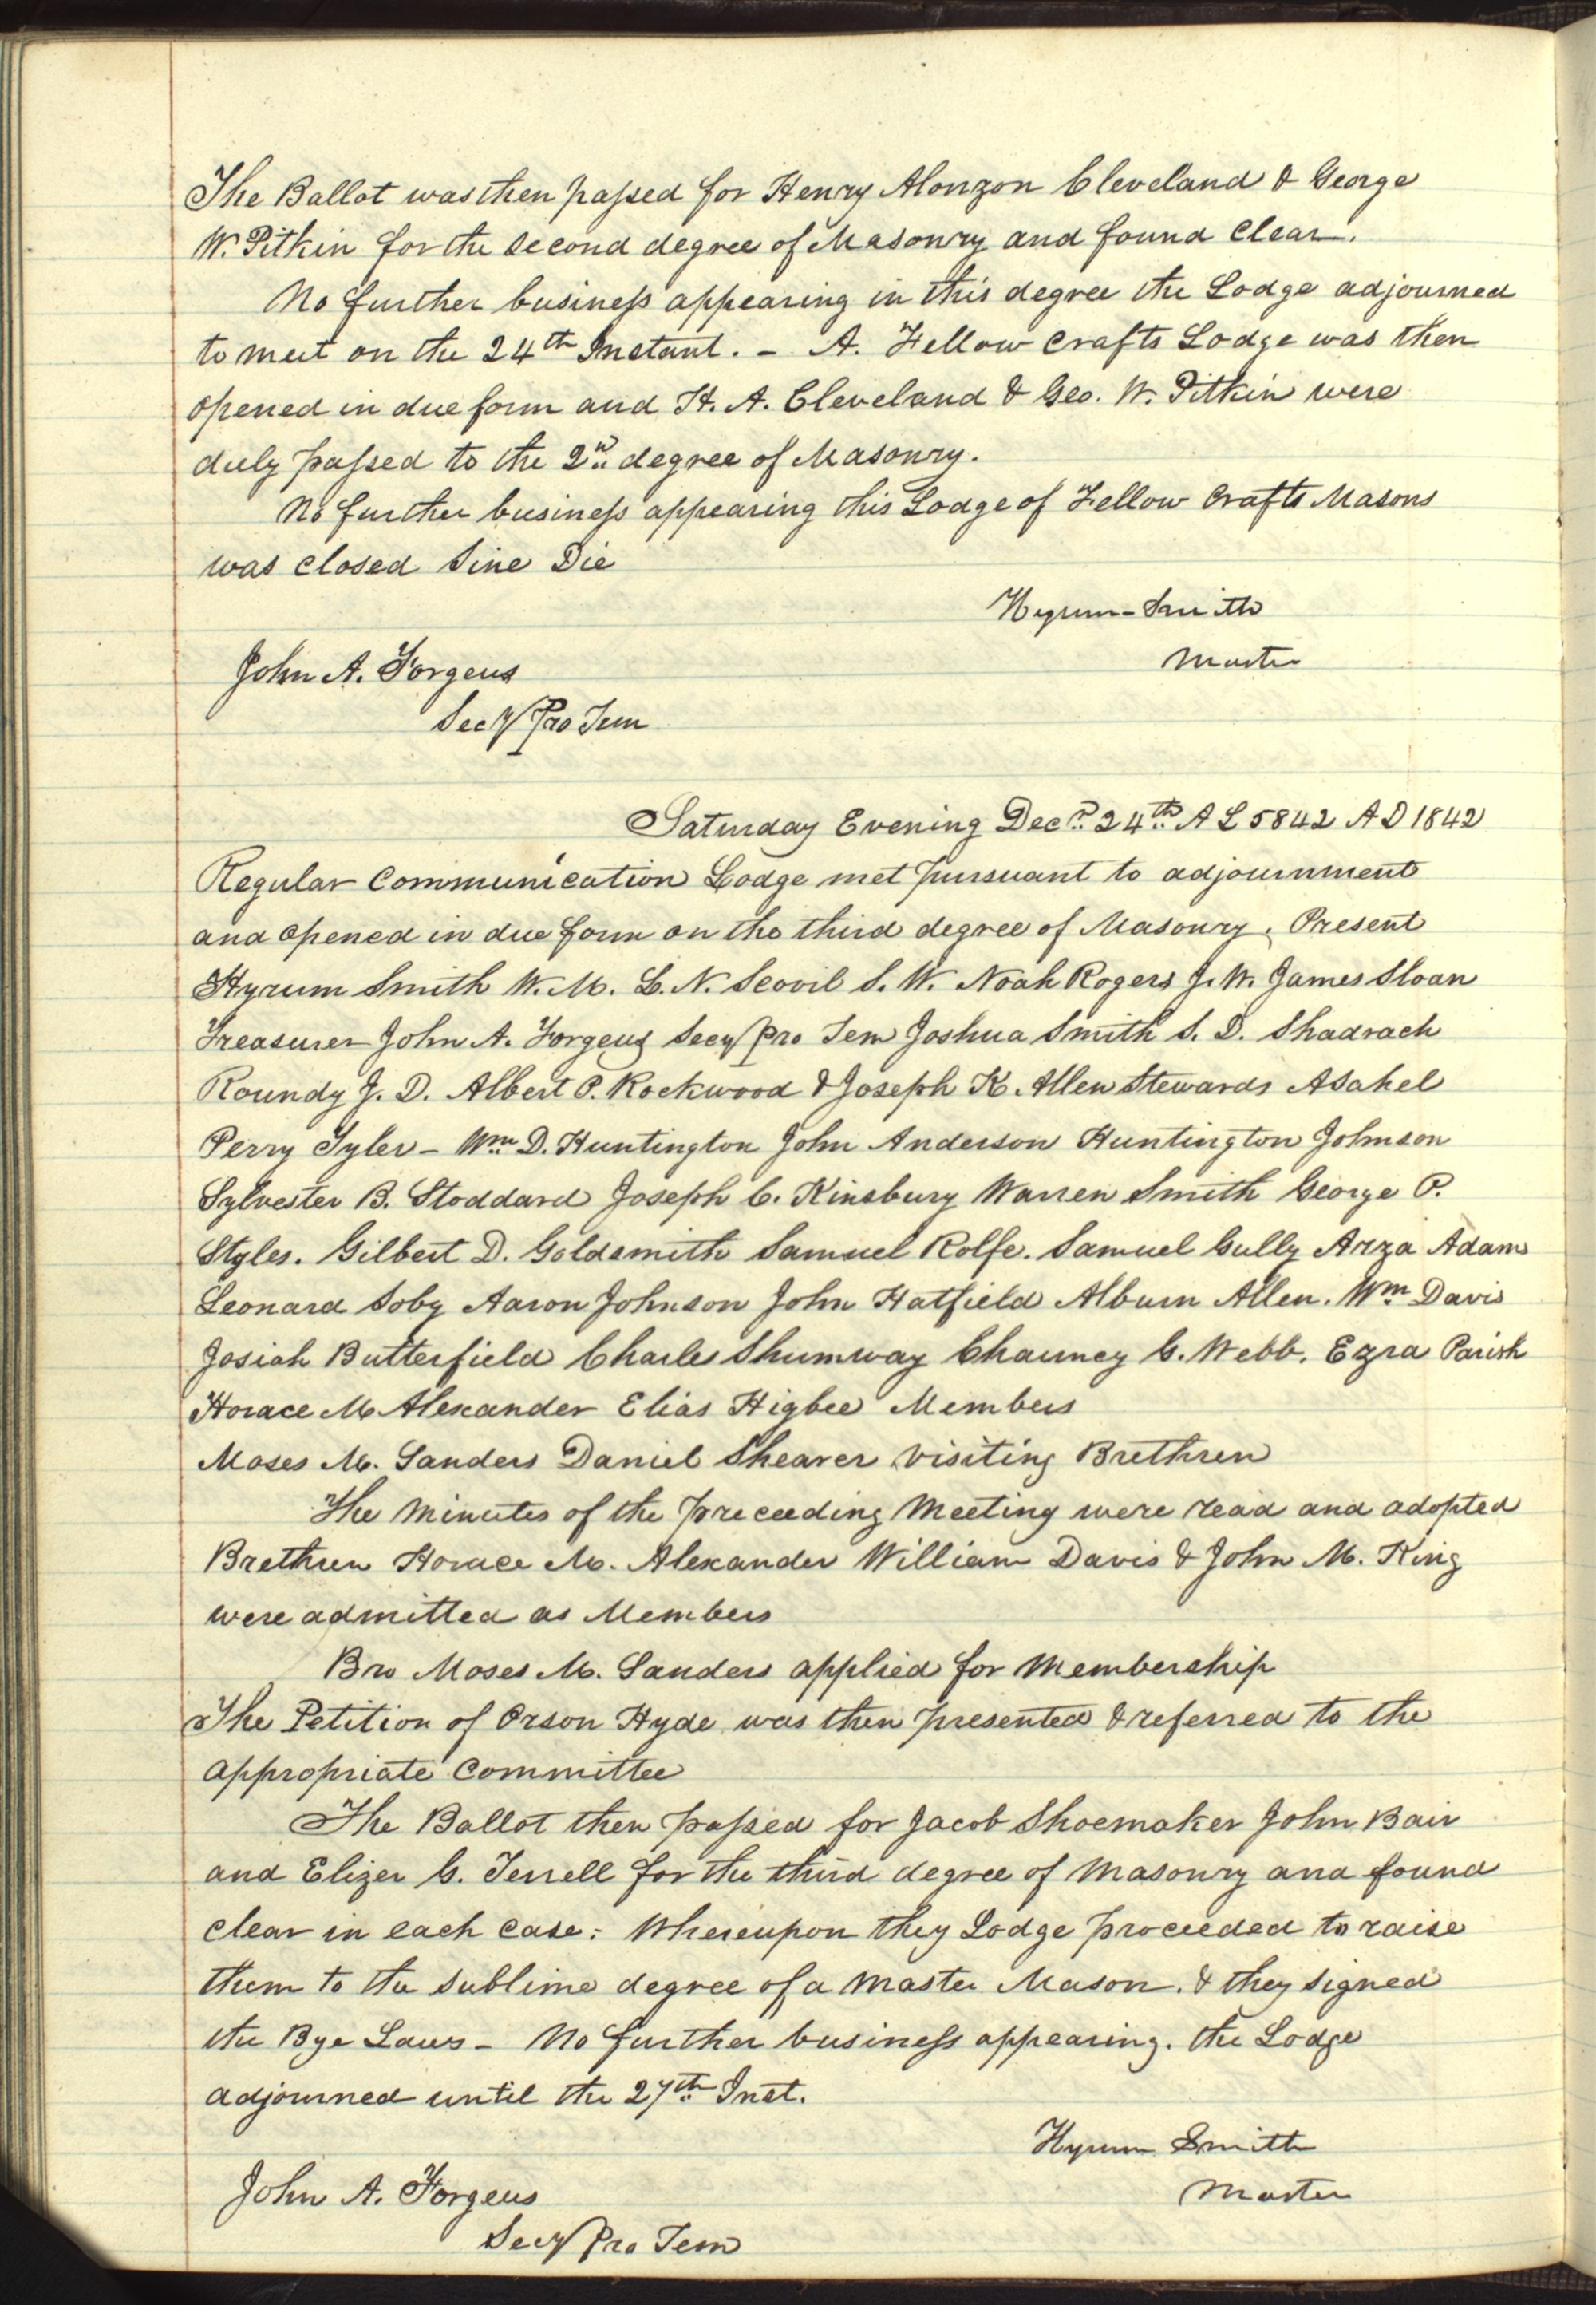 The Ballot was then passed for Henry Alonzon Cleveland & George
W. Pitkin for the Second degree of Masonry and found Clear.
No further business appearing in this degree the Lodge adjourned
to meet on the 24th Instant. – A. Fellow Crafts Lodge was then
opened in due form and H. A. Cleveland & Geo. W. Pitkin were
duly passed to the 2nd degree of Masonry.
No further business appearing this Lodge of Fellow Crafts Masons
was closed Sine Die
Hyrum Smith
Master
John A. Forgeus
Secy Pro Tem
Saturday Evening Decr 24th A L 5842 A D 1842
Regular Communication Lodge met pursuant to adjournment
and opened in due form on the third degree of Masonry. Present
Hyrum Smith W. M. L. N. Scovil S. W. Noah Rogers J. W. James Sloan
Treasurer John A. Forgeus Secy Pro Tem Joshua Smith S. D. Shadrach
Roundy J. D. Albert P. Rockwood & Joseph K. Allen Stewards Asahel
Perry Tyler – Wm D. Huntington John Anderson Huntington Johnson
Sylvester B. Stoddard Joseph C. Kinsbury Warren Smith George P.
Styles. Gilbert D. Goldsmith Samuel Rolfe. Samuel Gully Arza Adams
Leonard Soby Aaron Johnson John Hatfield Alburn Allen. Wm Davis
Josiah Butterfield Charles Shumway Chauncy G. Webb. Ezra Parish
Horace M Alexander Elias Higbee Members
Moses M. Sanders Daniel Shearer visiting Brethren
The Minutes of the preceeding Meeting were read and adopted
Brethren Horace M. Alexander William Davis & John M. King
were admitted as Members
Bro Moses M. Sanders applied for Membership
The Petition of Orson Hyde was then presented & referred to the
appropriate Committee
The Ballot then passed for Jacob Shoemaker John Bair
and Elizer G. Terrell for the third degree of Masonry and found
clear in each case: Whereupon they Lodge proceeded to raise
them to the sublime degree of a Master Mason. & they signed
the Bye Laws – No further business appearing. the Lodge
adjourned until the 27th Inst.
Hyrum Smith
Master
John A. Forgeus
Secy Pro Tem